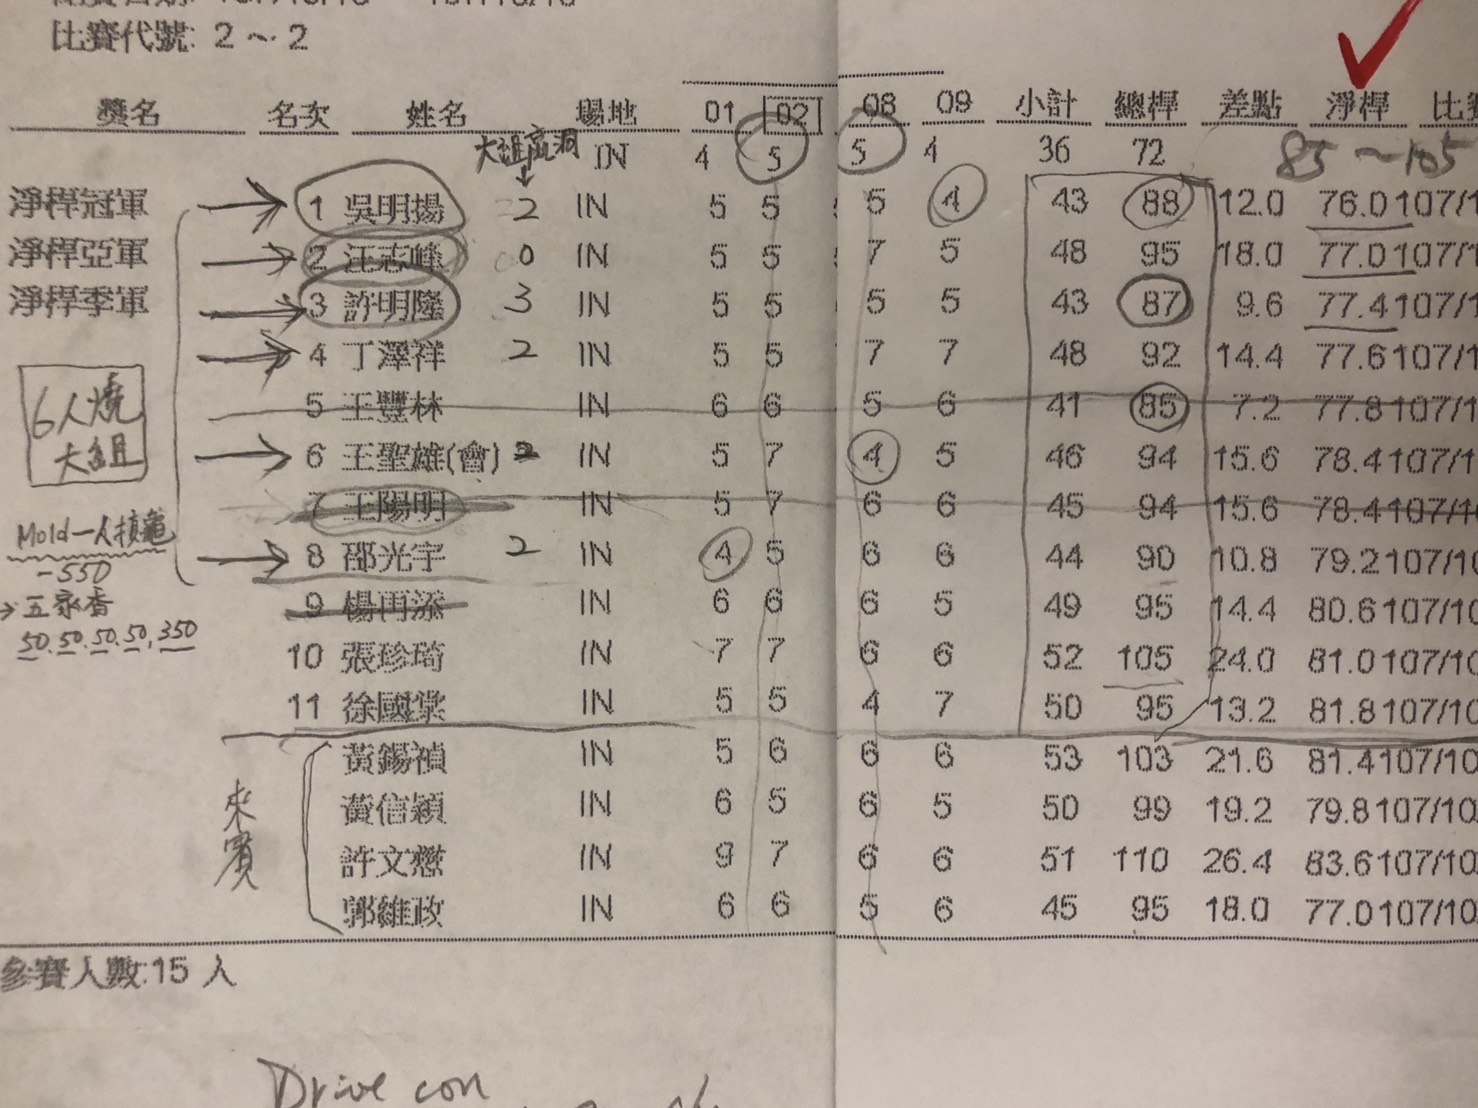 比賽代號: 2～2
獎名 名次 姓名 場地 01 02 08 09 小計 總桿 差點 淨桿 比賽
大組贏洞 IN 4 5 5 4 36 72 85～105
淨桿冠軍 1 吳明揚 2 IN 5 5 5 4 43 88 12.0 76.0 107/1
淨桿亞軍 2 汪志峰 0 IN 5 5 7 5 48 95 18.0 77.0 107/1
淨桿季軍 3 許明隆 3 IN 5 5 5 5 43 87 9.6 77.4 107/1
4 丁澤祥 2 IN 5 5 7 7 48 92 14.4 77.6 107/1
5 王豐林 IN 6 6 5 6 41 85 7.2 77.8 107/1
6人燒
大組
6 王聖雄(會) 2 IN 5 7 4 5 46 94 15.6 78.4 107/1
7 王陽明 IN 5 7 6 6 45 94 15.6 78.4 107/10
Mold一人槓龜
8 邵光宇 2 IN 4 5 6 6 44 90 10.8 79.2 107/10
-550
→五家香
9 楊再添 IN 6 6 6 5 49 95 14.4 80.6 107/10
50.50.50.50,350
10 張珍琦 IN 7 7 6 6 52 105 24.0 81.0 107/10
11 徐國棠 IN 5 5 4 7 50 95 13.2 81.8 107/10
來賓
黃錫禎 IN 5 6 6 6 53 103 21.6 81.4 107/10
黃信穎 IN 6 5 6 5 50 99 19.2 79.8 107/10
許文懋 IN 9 7 6 6 51 110 26.4 83.6 107/10
郭維政 IN 6 6 5 6 45 95 18.0 77.0 107/10
參賽人數:15 人
Drive con